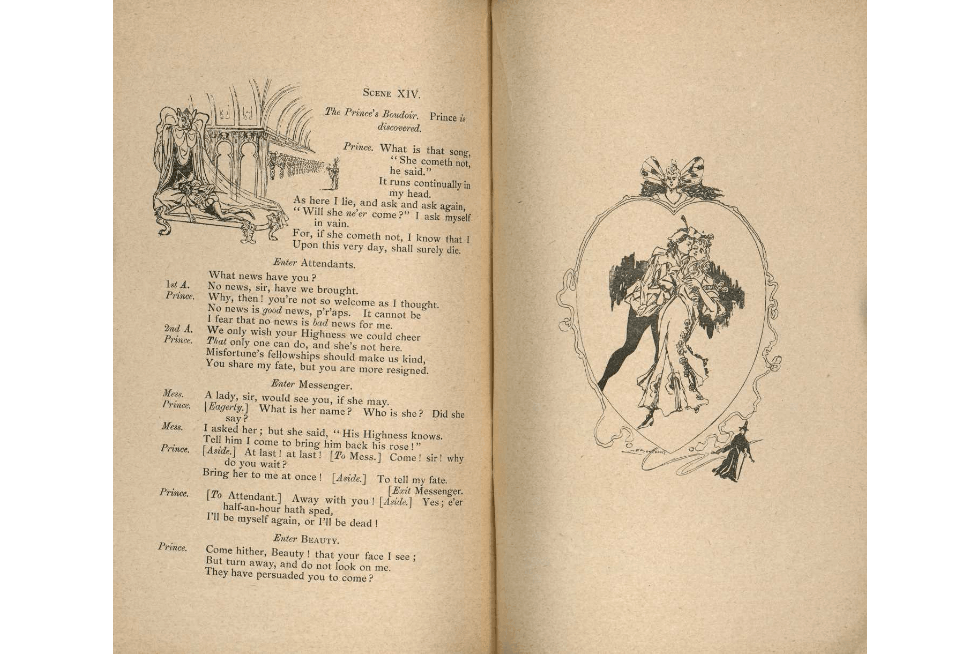 SCENE XIV.
The Prince's Boudoir. Prince is
discovered.
Prince. What is that song,
"She cometh not,
he said."
It runs continually in
my head.
As here I lie, and ask and ask again,
"Will she ne'er come?" I ask myself
in vain.
For, if she cometh not, I know that I
Upon this very day, shall surely die.
Enter Attendants.
What news have you?
1st A. No news, sir, have we brought.
Prince. Why, then! you're not so welcome as I thought.
No news is good news, p'r'aps. It cannot be
I fear that no news is bad news for me.
2nd A. We only wish your Highness we could cheer
Prince. That only one can do, and she's not here.
Misfortune's fellowships should make us kind,
You share my fate, but you are more resigned.
Enter Messenger.
Mess. A lady, sir, would see you, if she may.
Prince. [Eagerly.] What is her name? Who is she? Did she
say?
Mess. I asked her; but she said, "His Highness knows.
Tell him I come to bring him back his rose!"
Prince. [Aside.] At last! at last! [To Mess.] Come! sir! why
do you wait?
Bring her to me at once! [Aside.] To tell my fate.
[Exit Messenger.
Prince. [To Attendant.] Away with you! [Aside.] Yes; e'er
half-an-hour hath sped,
I'll be myself again, or I'll be dead!
Enter BEAUTY.
Prince. Come hither, Beauty! that your face I see;
But turn away, and do not look on me.
They have persuaded you to come?